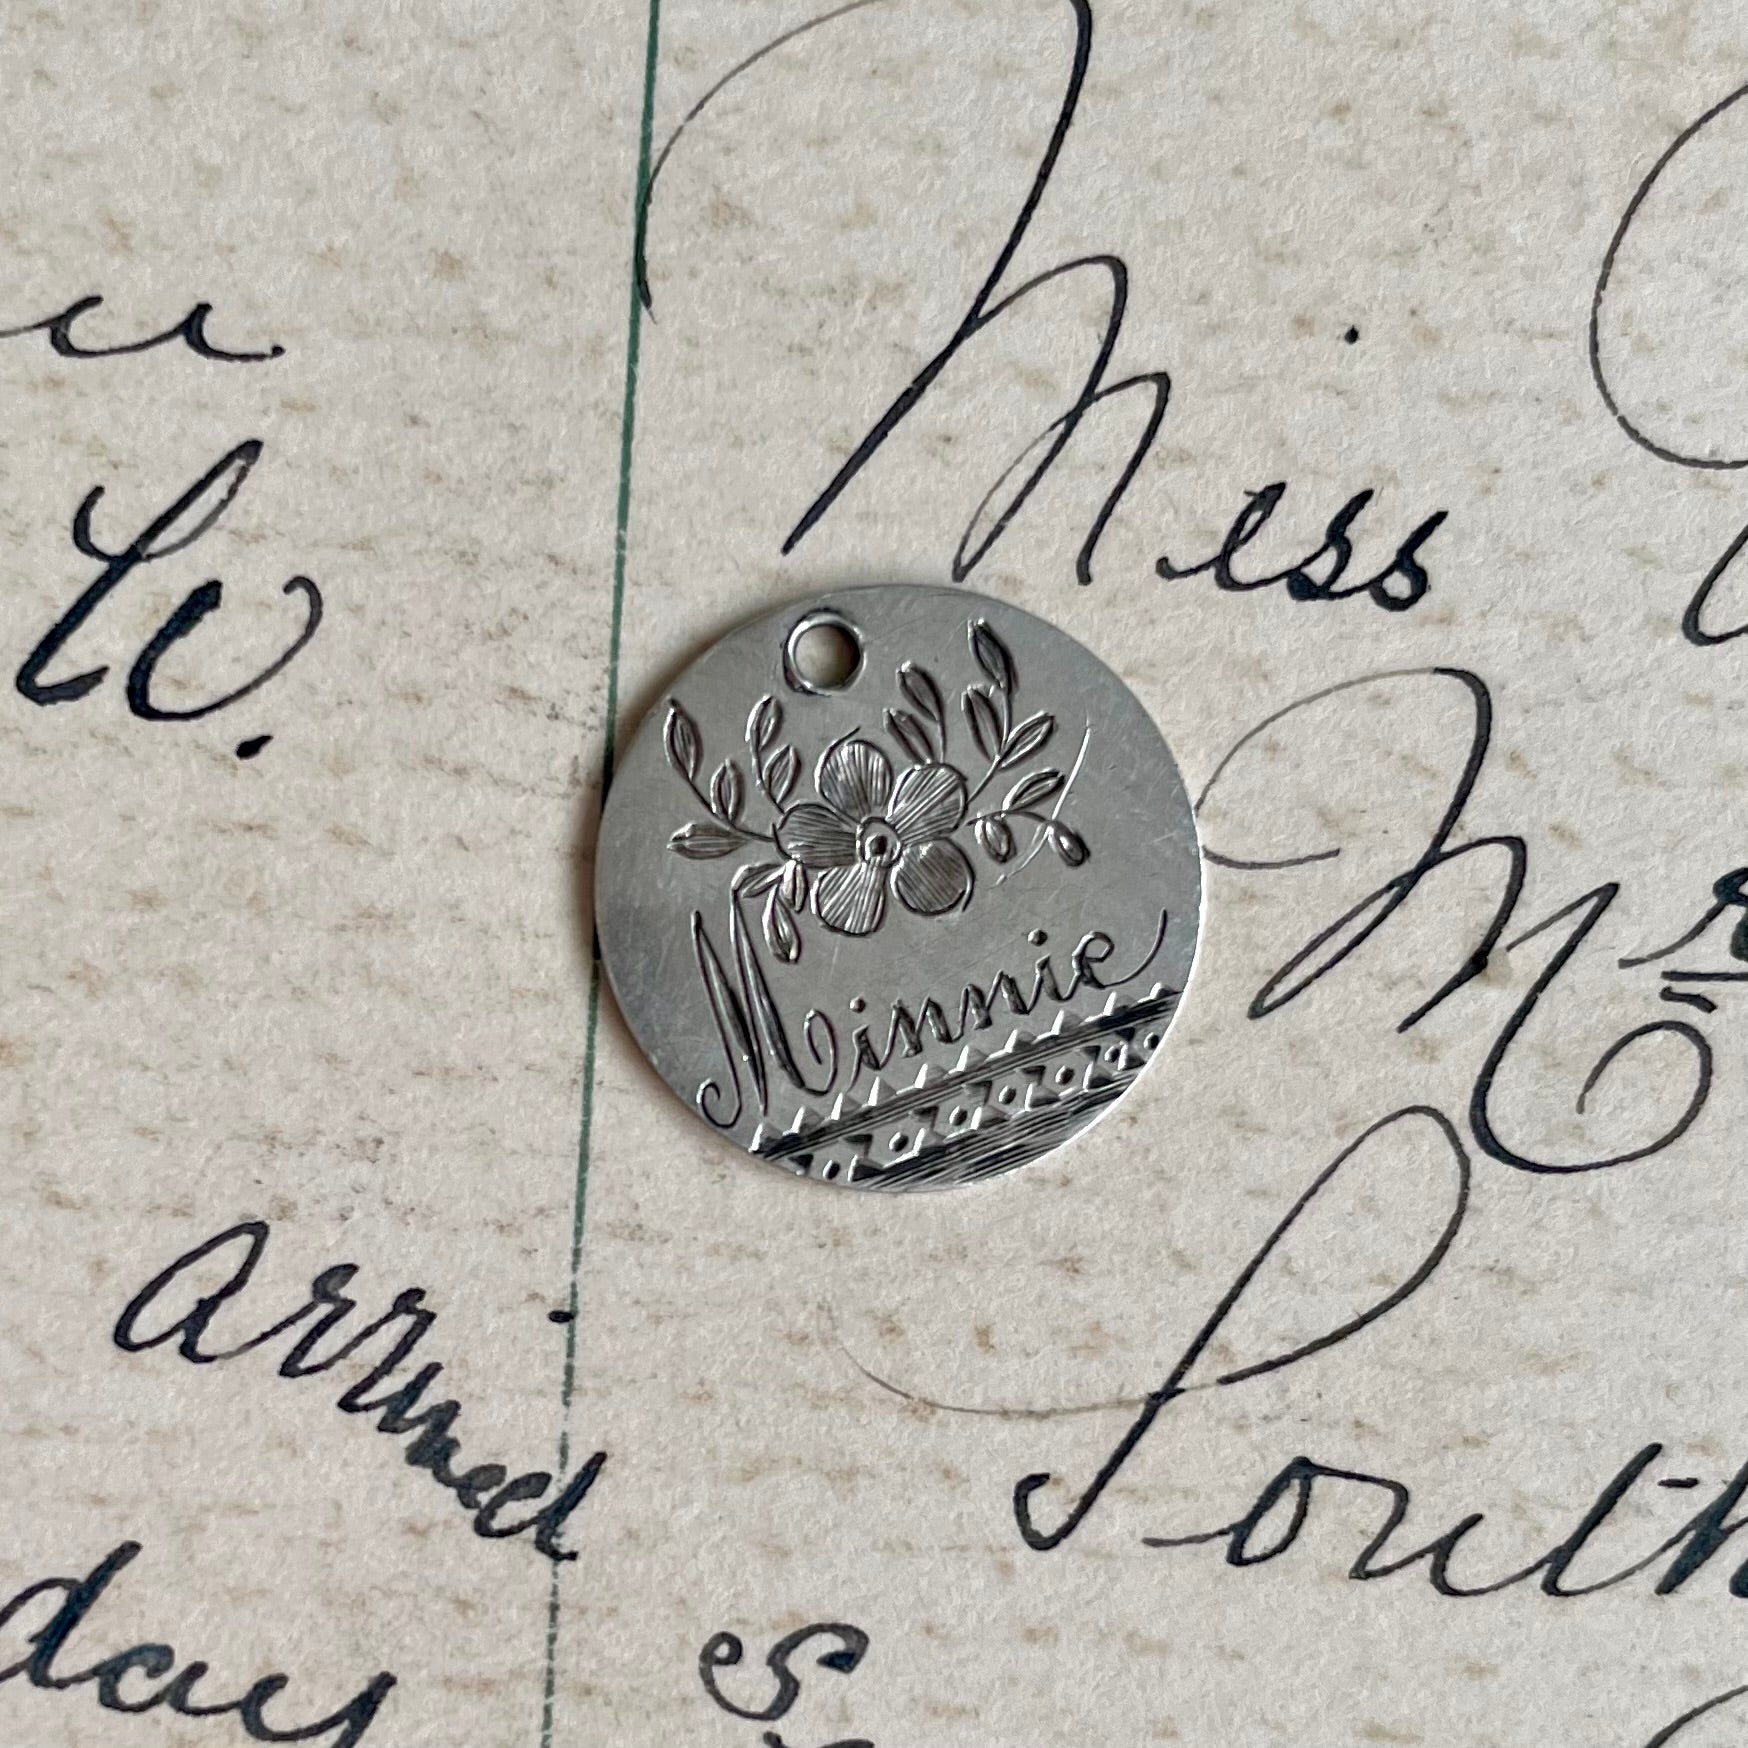 Miss
Co.
Mrs
Minnie
arrived
South
day